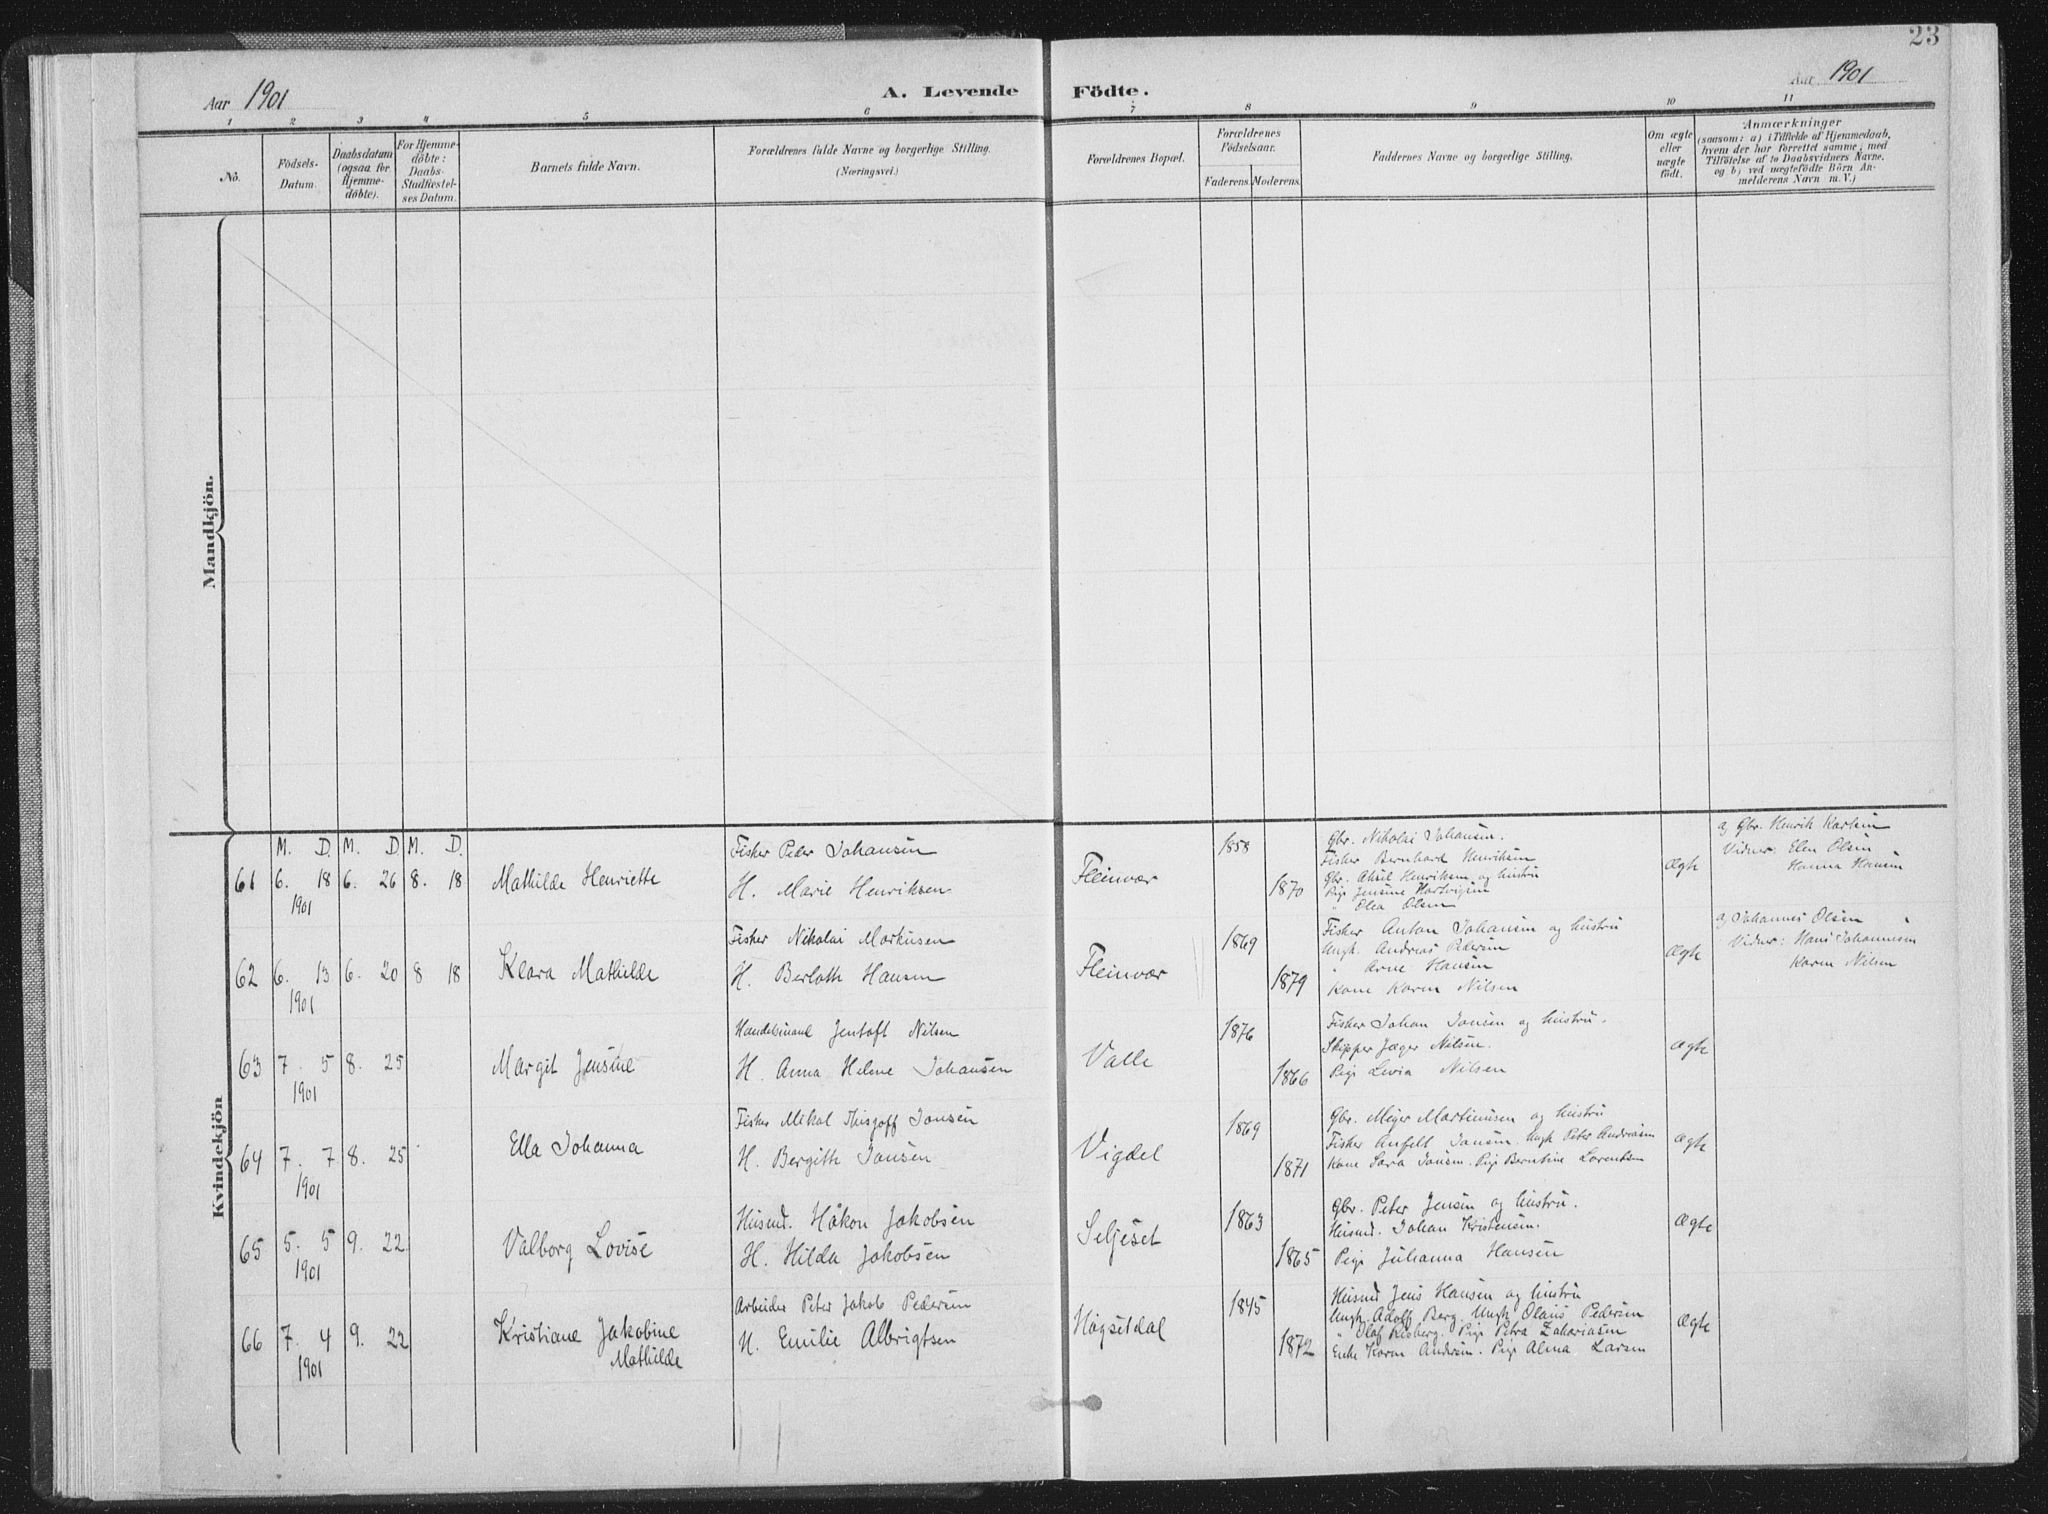 23
Aar 1901
A. Levende Födte.
Aar 1901
1 2 3 4 5 6 7 8 9 10 11
No.
Födsels-Datum.
Daabsdatum (ogsaa for Hjemmedöbte).
For Hjemmedöbte: Daabs-Stadfæstelses Datum.
Barnets fulde Navn.
Forældrenes fulde Navne og borgerlige Stilling. (Næringsvei.)
Forældrenes Bopæl.
Forældrenes Födselsaar.
Faderens. Moderens.
Faddernes Navne og borgerlige Stilling.
Om ægte eller uægte födt.
Anmærkninger
(saasom: a) i Tilfælde af Hjemmedaab, hvem der har forrettet samme, med Tilföielse af to Daabsvidners Navne, og b) ved uægtefödte Börn Anmelderens Navn m. V.)
Mandkjön.
Kvindekjön
M. D. M. D. M. D.
61 6. 18 1901 6. 26 8. 18
Mathilde Henriette
Fisker Peder Johansen
H. Marie Henriksen
Fleinvær
1858
1870
Gbr. Nikolai Johansen.
Fisker Bernhard Henriksen
Gbr. Aksel Henriksen og hustru
Pige Jensine Hartvigsen
" Olea Olsen
Ægte
a) Gbr. Henrik Karlsen
Vidner: Elen Olsen
Hanna Hansen
62 6. 13 1901 6. 20 8 18
Klara Mathilde
Fisker Nikolai Markusen
H. Berloth Hansen
Fleinvær
1869
1879
Fisker Anton Johansen og hustru
Ungk. Andreas Pedersen
" Arne Hansen
Kone Karen Nilsen
Ægte
a) Johannes Olsen
Vidner: Hans Johannesen
Karen Nilsen
63 7. 5 1901 8. 25
Margit Jensine
Handelsmand Jentoft Nilsen
H. Anna Helene Johansen
Valle
1876
1866
Fisker Johan Jansen og hustru.
Skipper Jæger Nilsen.
Pige Levia Nilsen
Ægte
64 7. 7 1901 8. 25
Ella Johanna
Fisker Mikal Jonsen
H. Bergith Jonsen
Vigdel
1869
1871
Gbr. Meyer Martinusen og hustru
Fisker Anfelt Jansen. Ungk Peter Andreasen
Kone Sara Jonsen. Pige Berntine Lorentsen
Ægte
65 5. 5 1901 9. 22
Valborg Lovise
Husmd. Håkon Jakobsen
H. Hilda Jakobsen
Seljeset
1863
1865
Gbr. Peter Jensen og hustru.
Husmd. Johan Kristensen.
Pige Julianna Hansen
Ægte
66 7. 4 1901 9. 22
Kristiane Jakobine
Mathilde
Arbeider Peter Jakob Pedersen
H. Emilie Albrigtsen
Høgsetdal
1845
1872
Husmd Jens Hansen og hustru
Ungk. Adolf Berg. Ungk Olaus Pedersen
" Olaf Pige Petra Zakariasen
Enke Karen Andersen. Pige Alma Larsen
Ægte